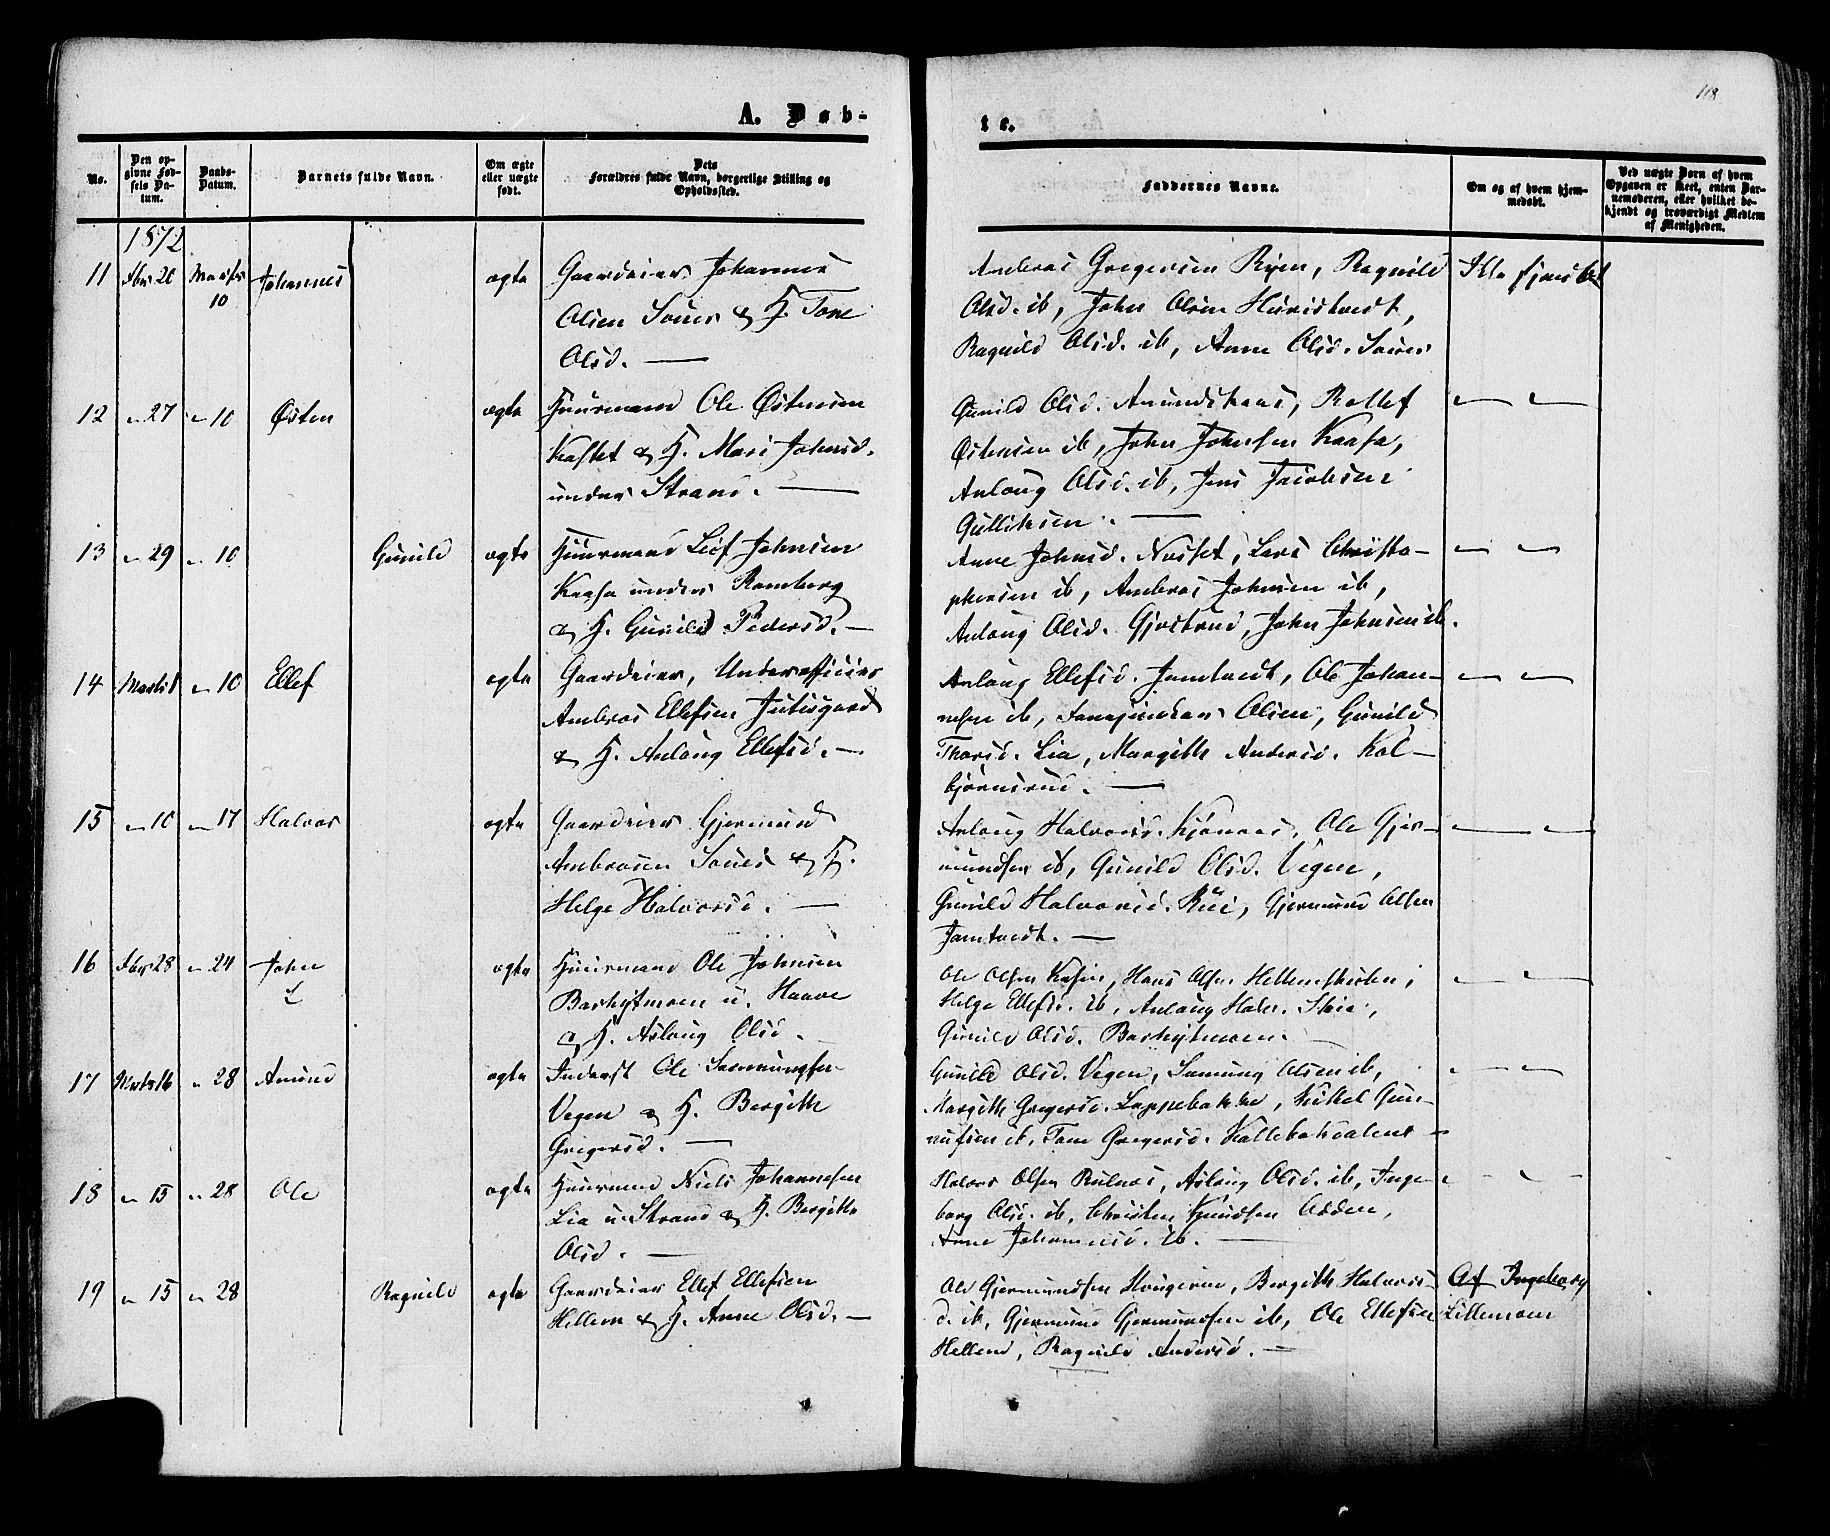 118
A. Døb-
te.
No.
Den op-
givne Fød-
sels Da-
tum.
Daabs-
Datum.
Barnets fulde Navn.
Om ægte
eller uægte
født.
Dets
Forældres fulde Navn, borgerlige Stilling og
Opholdssted.
Faddernes Navne.
Om og af hvem hjem-
medøbt.
Ved uægte Børn af hvem
Opgaven er skeet, enten Bar-
nemoderen, eller hvilket be-
kjendt og troværdigt Medlem
af Menigheden.
1872
11 Fbr 20 Marts 10 Johannes ægte Gaardeier Johannes
Olsen Soues & H. Tone
Olsd. —
Ambros Gregersen Ryen, Ragnild
Olsd. ib, John Olsen
Ragnild Olsd. ib, Anne Olsd. Soues
Ikke hjemdøbt
12 " 27 " 10 Østen ægte Huusmand Ole Østensen
Kastet & H. Mari Johnsd.
under Strand. —
Gunild Olsd. Rollef
Østensen ib, John Johnsen Kaasa,
Aslaug Olsd. ib, Jens Jacobsen
Gulliksen. —
" "
13 " 29 " 10 Gunild ægte Huusmand Leif Johnsen
Kaasa under Ramberg
& H. Gunild Pedersd. —
Anne Johnsd. Lars Christo-
phersen ib, Ambros Johnsen ib,
Aslaug Olsd. Gjestrud, John Johnsen ib.
" "
14 Marts 1 " 10 Ellef ægte Gaardeier, Underofficier
Ambros Ellefsen Juvsgaard
& H. Aslaug Ellefsd. —
Aslaug Ellefsd. Jamtvedt, Ole Johan-
nesen ib, Fanejunker Olsen, Gunild
Thorsd. Lia, Margith Andersd. Kol-
bjørnsrud. —
" "
15 " 10 " 17 Halvor ægte Gaardeier Gjermund
Ambrosen Soues & H.
Helge Halvorsd. —
Aslaug Halvorsd. Ole Gjer-
mundsen ib, Gunild Olsd. Vegen,
Gunild Halvorsd. Rue, Gjermund Olsen
Jamtvedt. —
" "
16 Fbr 28 " 24 John ægte Huusmand Ole Johnsen
Barhytmoen u. Haave
& H. Aslaug Olsd. —
Ole Olsen Hans Olsen
Helge Ellefsd. ib, Aslaug Halv.
Gunild Olsd. Barhytmoen. —
" "
17 Marts 16 " 28 Amund ægte Inderst Ole Sammungsen
Vegen & H. Bergith
Gregersd. —
Gunild Olsd. Vegen, Samung Olsen ib,
Margith Gregersd. Loppebakke, Kittel Gun-
nufsen ib, Tone Gregersd.
" "
18 " 15 " 28 Ole ægte Huusmand Niels Johannesen
Lia u. Strand & H. Bergitte
Olsd. —
Halvor Olsen Aslaug Olsd. ib, Inge-
borg Olsd. ib, Christen Knudsen Odden,
Anne Johannesd. ib. —
" "
19 " 15 " 28 Ragnild ægte Gaardeier Ellef Ellefsen
Hellem & H. Anne Olsd. —
Ole Gjermundsen Haugerud, Bergith Halvors-
d. ib, Gjermund Gjermundsen ib, Ole Ellefsen
Hellem, Ragnild Andersd. —
Af Ingeborg
Lillemoen